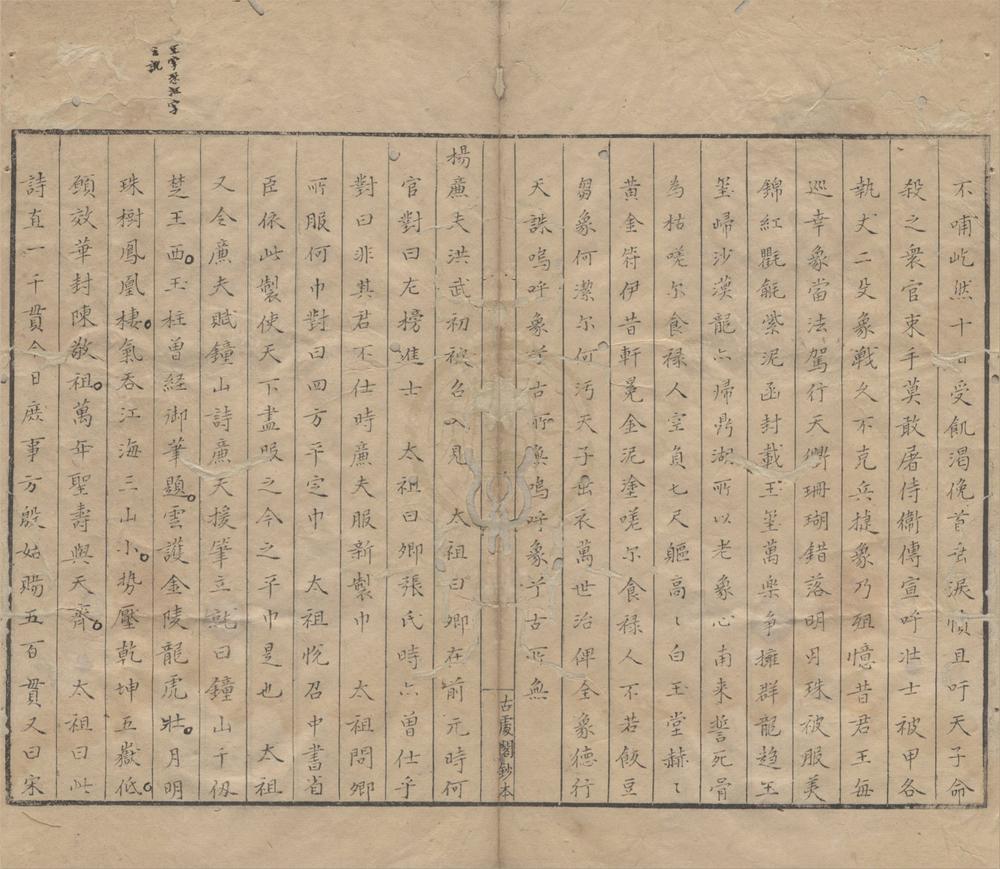 不哺屹然十日受飢渴俛首垂淚憤且吁天子命
殺之衆官束手莫敢屠侍衞傳宣呼壯士被甲各
執丈二殳象戰久不克兵捷象乃殂憶昔君王每
巡幸象當法駕行天衢珊瑚錯落明月珠被服美
錦紅氍毹紫泥函封載玉璽萬樂爭擁群龍趋玉
璽歸沙漠龍亦歸鼎湖所以老象心南来誓死骨
為枯嗟尔食禄人空負七尺軀高〻白玉堂赫〻
黄金符伊昔軒冕金泥塗嗟尔食禄人不若飯豆
芻象何潔尔何污天子垂衣萬世治俾全象德行
天誅嗚呼象乎古所無嗚呼象乎古所無
古虞閣鈔本
楊廉夫洪武初被召入見 太祖曰卿在前元時何
官對曰左榜進士 太祖曰卿張氏時亦曾仕乎
對曰非其君不仕時廉夫服新製巾 太祖問卿
所服何巾對曰四方平定巾 太祖悅召中書省
臣依此製使天下盡服之今之平巾是也 太祖
又令廉夫賦鐘山詩廉夫援筆立就曰鐘山千仞
楚王西玉柱曽経御筆題雲護金陵龍虎壯月明
珠樹鳳凰棲氣吞江海三山小勢壓乾坤五嶽低
願效華封陳敬祖萬年聖壽與天齊 太祖曰此
詩直一千貫今日庶事方殷姑賜五百貫又曰宋
之訛